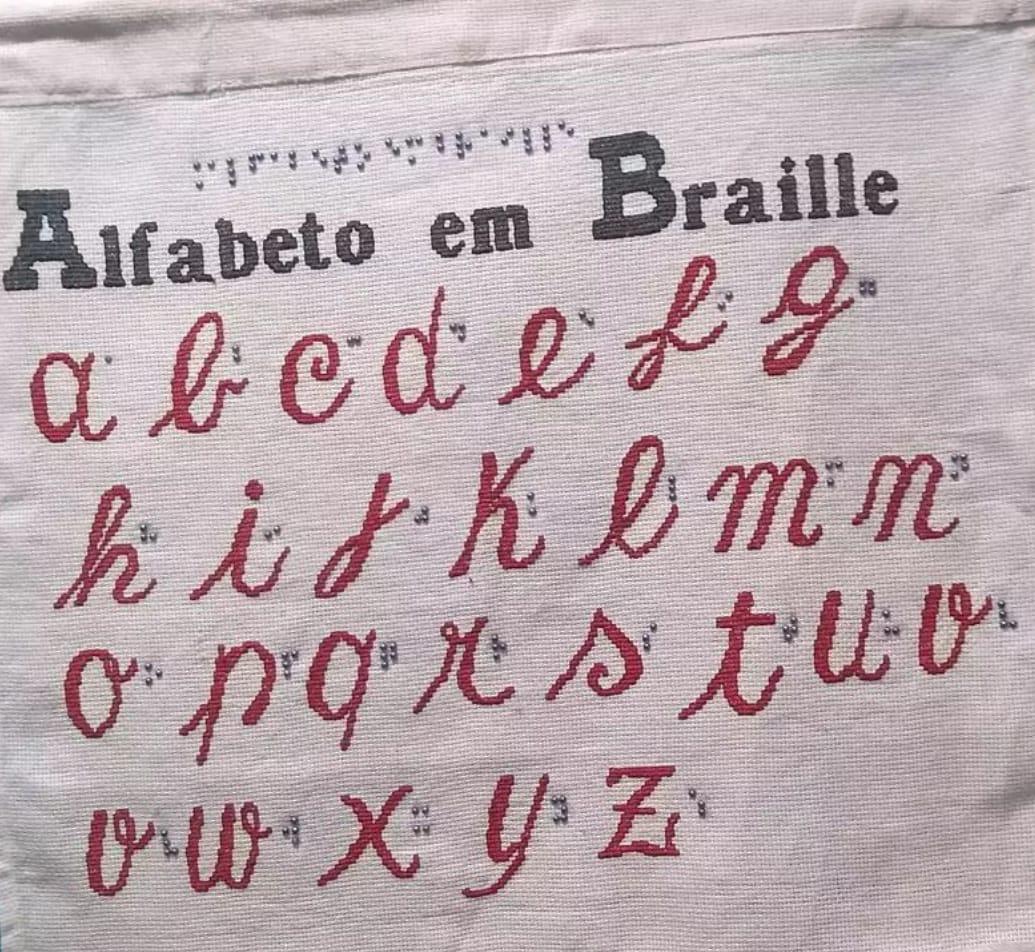 Alfabeto em Braille
a b c d e f g
h i j k l m n
o p q r s t u v
v w x y z